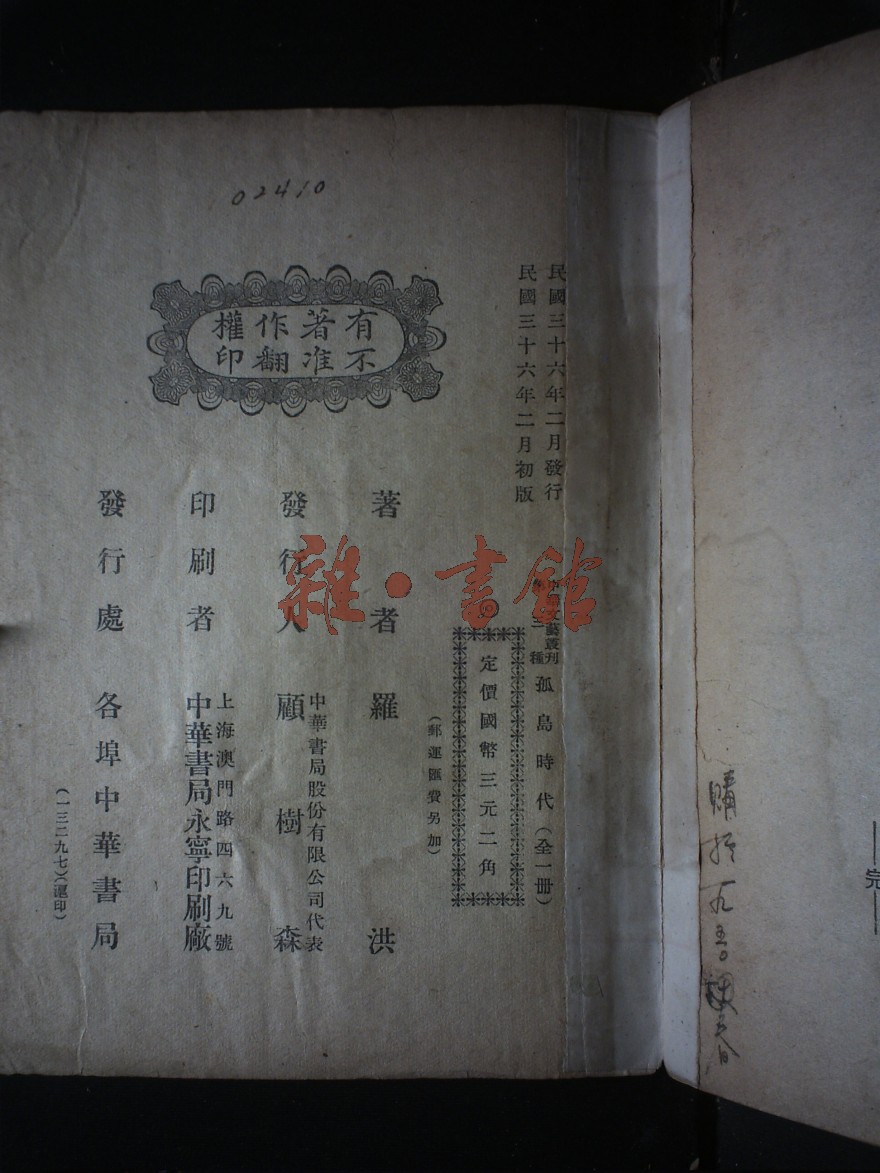 02410
民國三十六年二月發行
民國三十六年二月初版
中華文藝叢刊
種
孤島時代(全一册)
定價國幣三元二角
(郵運匯費另加)
有著作權
不准翻印
著者 羅洪
發行人 中華書局股份有限公司代表
顧樹森
印刷者 上海澳門路四六九號
中華書局永寧印刷廠
發行處 各埠中華書局
(一三二九七)(滬印)
雜·書館
購於一九五〇
完